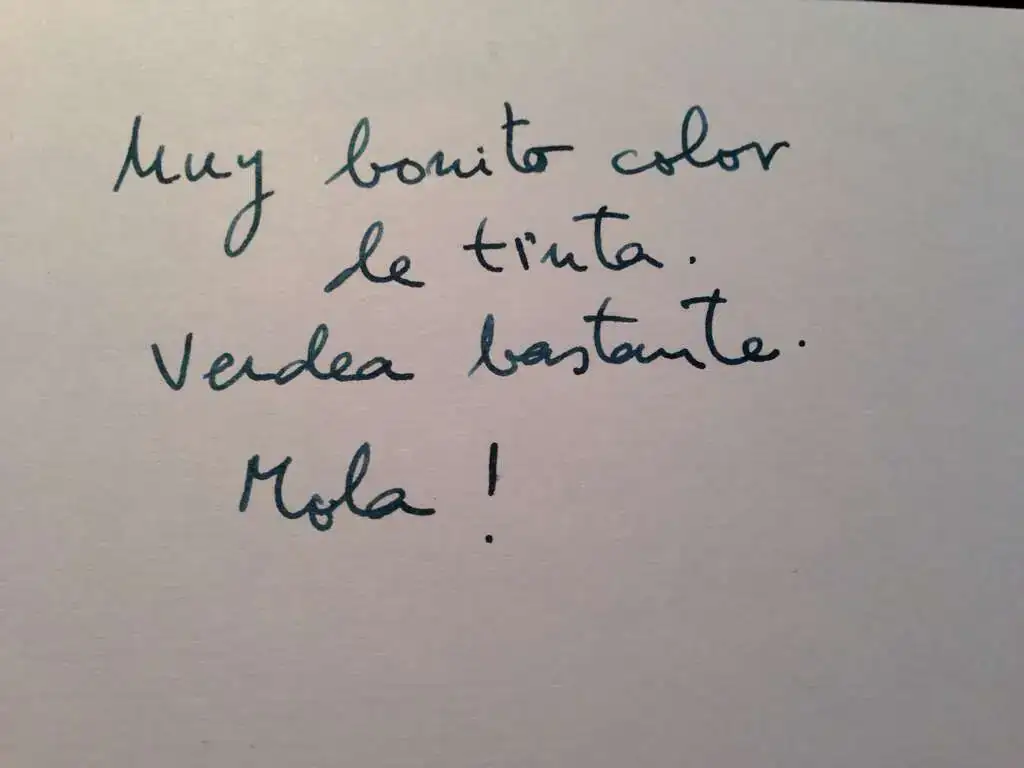 Muy bonito color
de tinta.
Verdea bastante.
Mola !